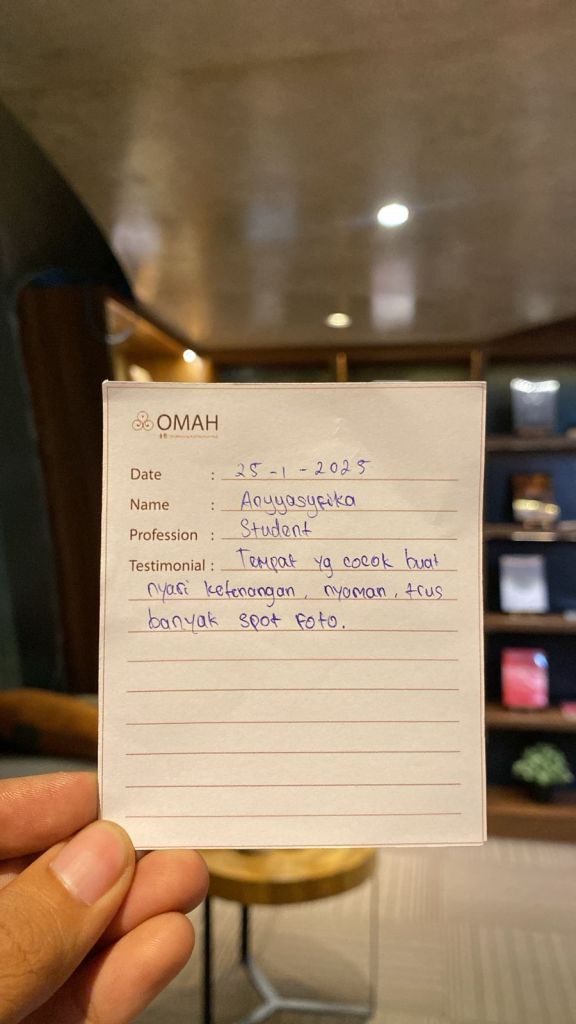 OMAH
Date : 25-1-2025
Name : Anyyasyfika
Profession : Student
Testimonial : Tempat yg cocok buat
nyari ketenangan, nyaman, trus
banyak spot foto.